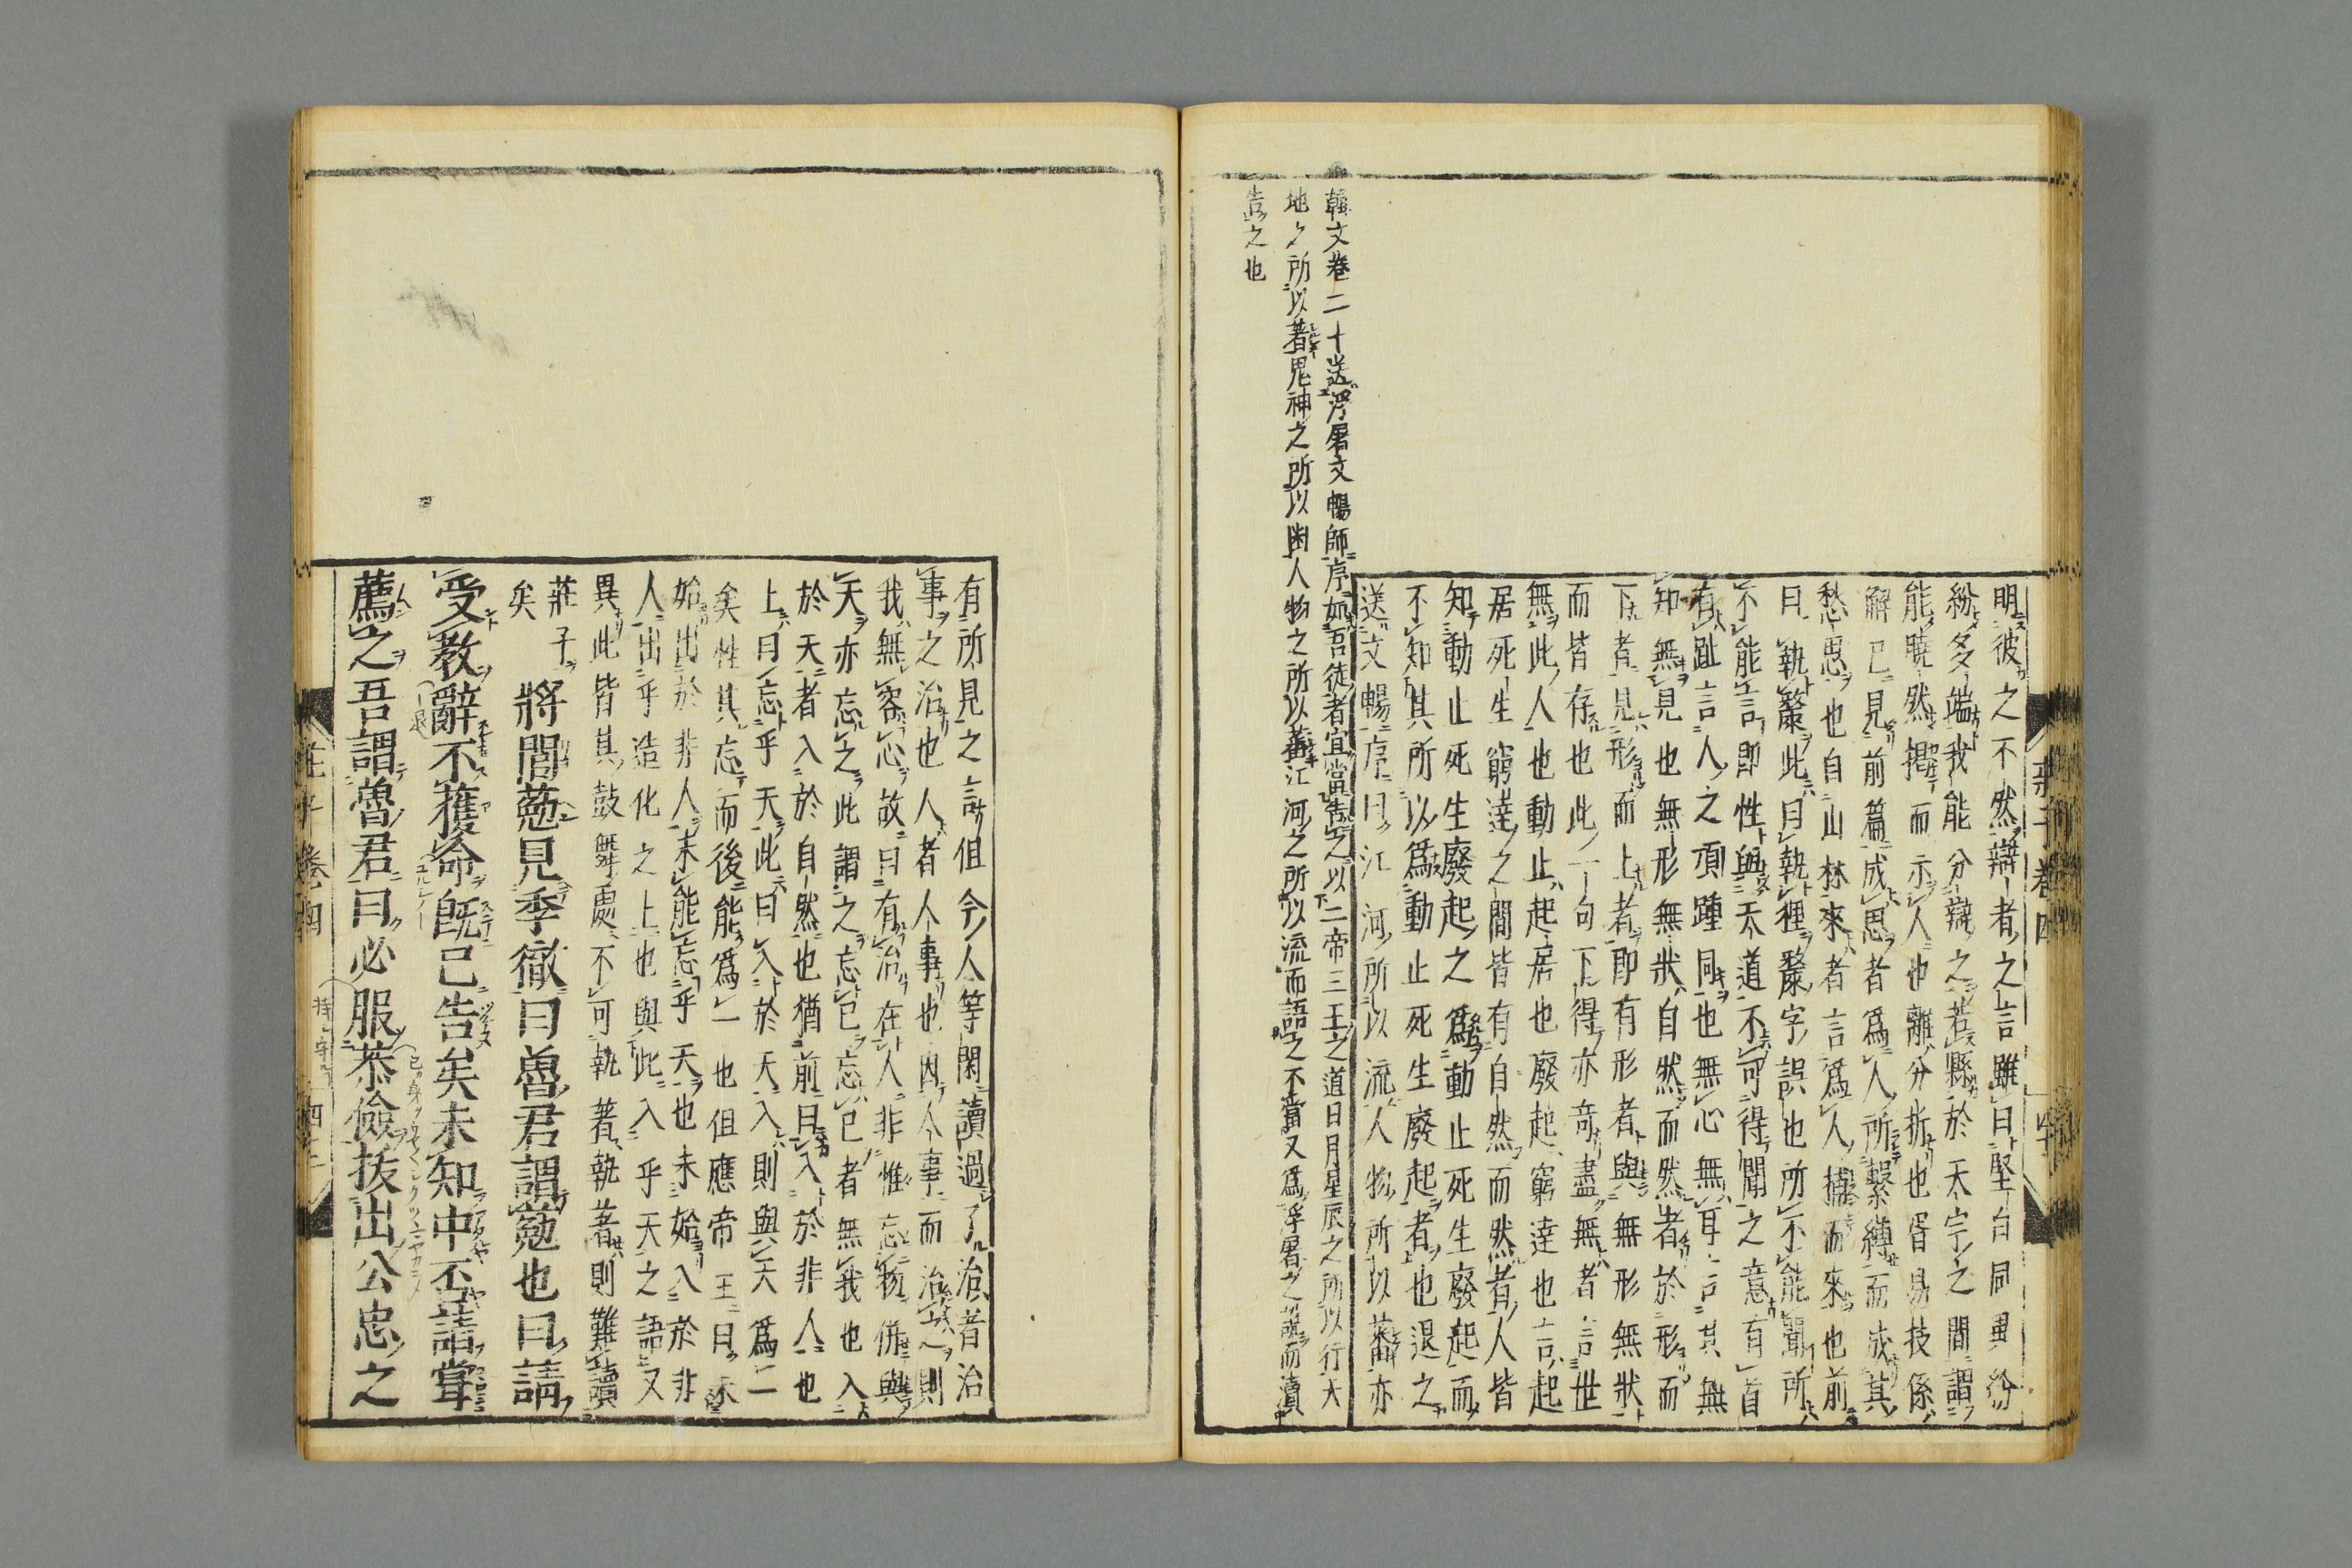 莊子卷四
明彼之不然辯者之言雖曰堅白同異紛
紛多端我能分辯之若縣於天宇之間謂
能曉然揭而示人也離分析也胥易技係
解已見前篇成思者爲人所繫縛而成其
愁思也自山林來者言爲人捕而來也前
曰執斄此曰執狸斄字誤也所不能聞所
不能言即性與天道不可得聞之意有首
有趾言人之頂踵同也無心無耳言其無
知無見也無形無狀自然而然者於形而
下者見形而上者即有形者與無形無狀
而皆存也此一句下得亦奇盡無者言世
無此人也動止起居也廢起窮達也言起
居死生窮達之間皆有自然而然者人皆
知動止死生廢起之爲動止死生廢起而
不知其所以爲動止死生廢起者也退之
送文暢序曰江河所以流人物所以蕃亦
韓文卷二十送浮屠文暢師序如吾徒者宜當告之以二帝三王之道日月星辰之所以行天
地之所以著鬼神之所以幽人物之所以蕃江河之所以流而語之不當又爲浮屠之說而瀆
告之也
有所見之言但今人等閑讀過了治者治
事之治也人者人事也因人事而治之則
我無容心故曰有治在人非惟忘物併與
天亦忘之此謂之忘己忘己者無我也入
於天者入於自然也猶前曰入於非人也
上曰忘乎天此曰入於天入則與天爲一
矣性其忘而後能爲一也但應帝王曰未
始出於非人未能忘乎天也未始入於非
人出乎造化之上也與此入乎天之語又
異此皆其鼓舞處不可執著執著則難讀
莊子
矣
將閭葂見季徹曰魯君謂葂也曰請
受教辭不獲命既已告矣未知中否請嘗
薦之吾謂魯君曰必服恭儉拔出公忠之
莊子卷四